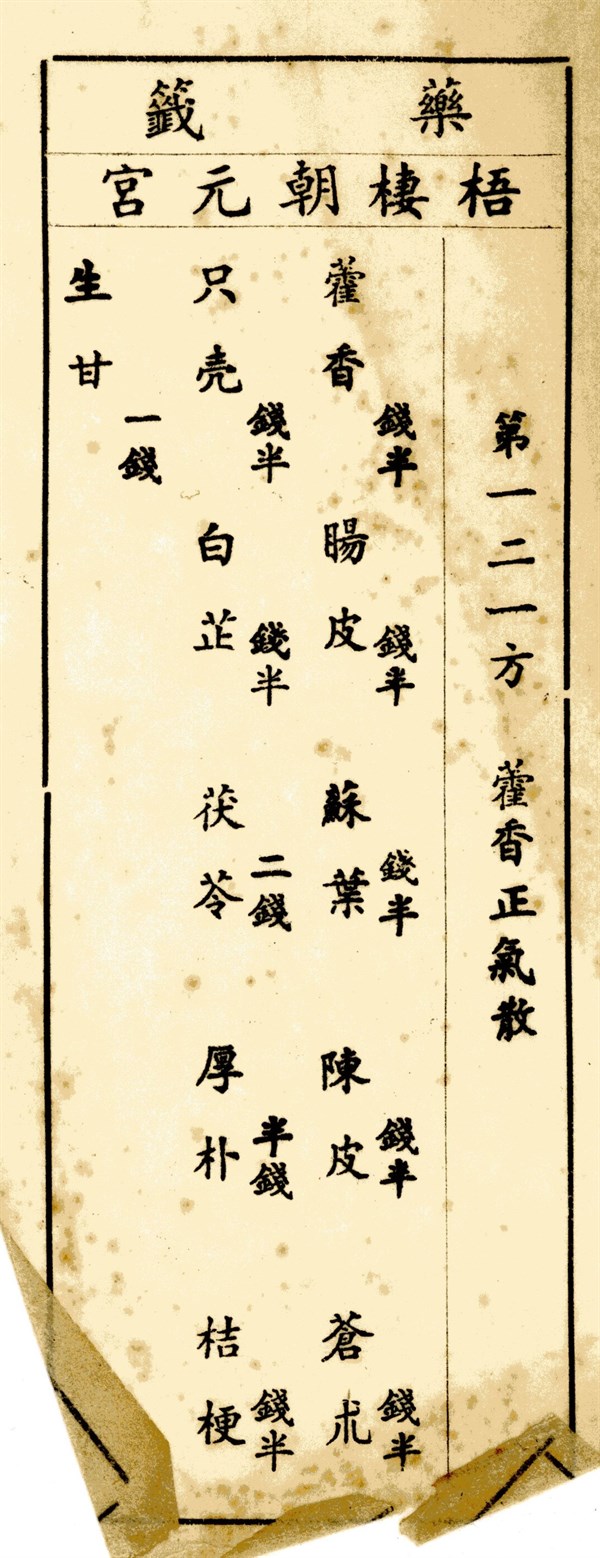 藥籤
梧棲朝元宮
第一二一方 藿香正氣散
藿香 錢半 腸皮 錢半 蘇葉 錢半 陳皮 錢半 蒼朮 錢半
只壳 錢半 白芷 錢半 茯苓 二錢 厚朴 半錢 桔梗 錢半
生甘 一錢